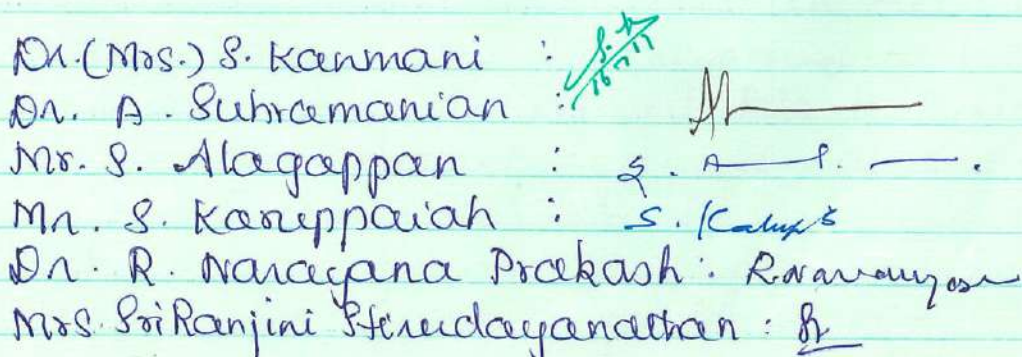 Dr. (Mrs.) S. Kanmani :
16/7/11
Dr. A. Subramanian :
Mr. S. Alagappan : S. A
Mr. S. Karuppaiah : S. Karup
Dr. R. Narayana Prakash : R. Narayan
Mrs. Sri Ranjini :